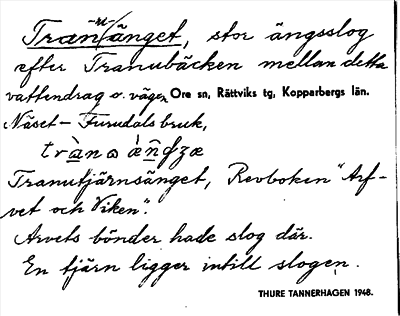 -u-
Tran/änget, stor ängsslog
efter Tranubäcken mellan detta
vattendrag o. vägen Ore sn, Rättviks tg, Kopparbergs län.
Näset - Furudals bruk,
Tranutjärnsänget, Revboken "Arf-
vet och Viken".
Arvets bönder hade slog där.
En tjärn ligger intill slogen.
THURE TANNERHAGEN 1948.